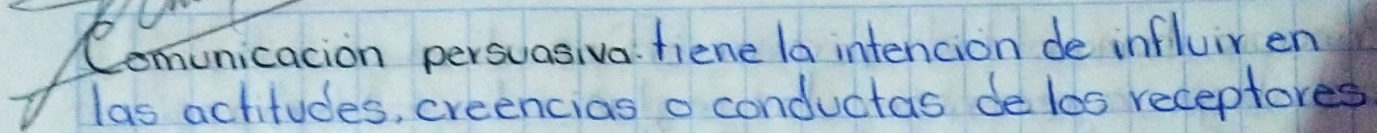 Comunicación persuasiva. tiene la intención de influir en
las actitudes, creencias o conductas de los receptores.